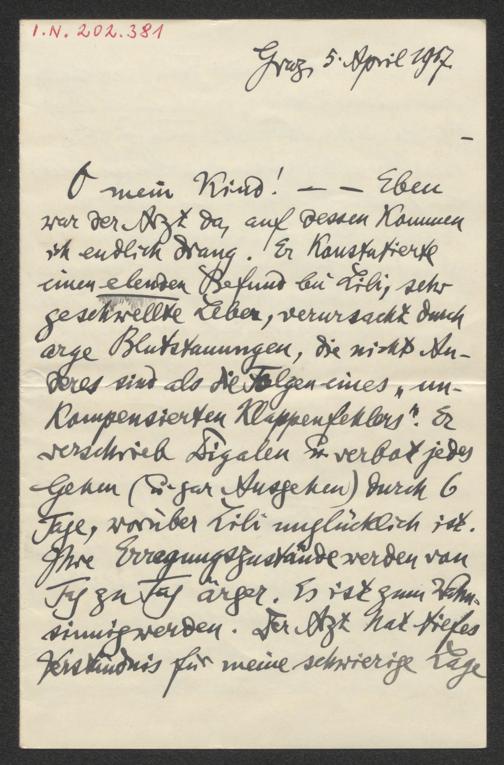 I.N. 202.381
Graz, 5. April 1957
O mein Kind! — — Eben
war der Arzt da, auf dessen Kommen
ich endlich drang. Er konstatierte
einen elenden Befund bei Lili, sehr
geschwellte Leber, verursacht durch
arge Blutstauungen, die nichts An-
deres sind als die Folgen eines „un-
kompensierten Klappenfehlers". Er
verschrieb Digalen u. verbot jedes
Gehen (u. gar Ausgehen) durch 6
Tage, worüber Lili unglücklich ist.
Ihre Erregungszustände werden von
Tag zu Tag ärger. Es ist zum Wahn-
sinnigwerden. Der Arzt hat tiefes
Verständnis für meine schwierige Lage